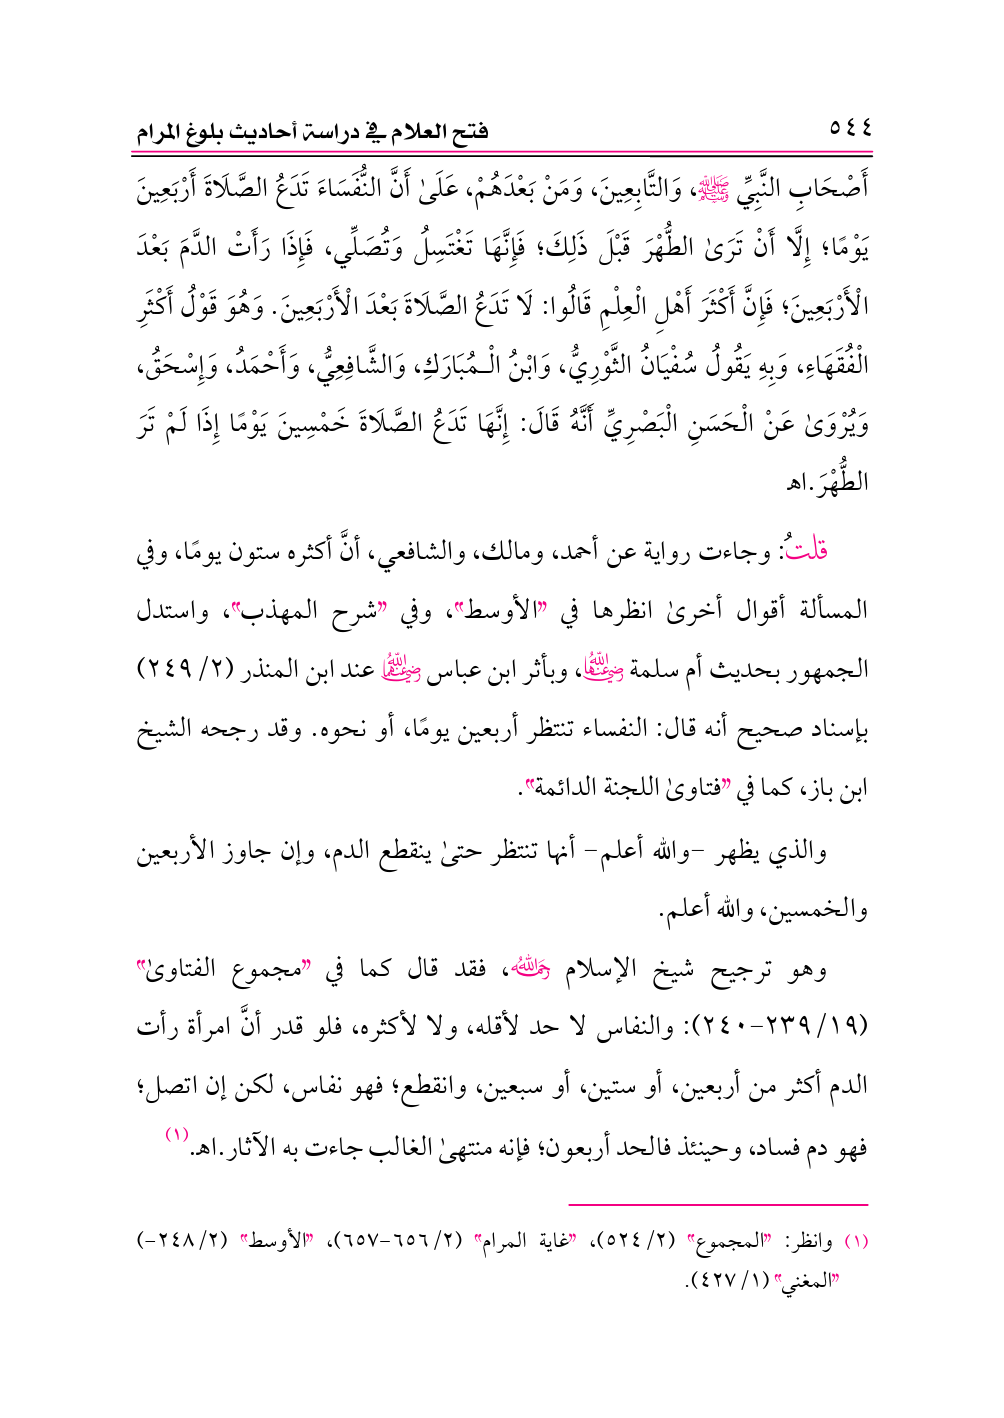 ٥٤٤
فتح العلام في دراسة أحاديث بلوغ المرام
أَصْحَابِ النَّبِيِّ ﷺ، وَالتَّابِعِينَ، وَمَنْ بَعْدَهُمْ، عَلَىٰ أَنَّ النُّفَسَاءَ تَدَعُ الصَّلَاةَ أَرْبَعِينَ
يَوْمًا؛ إِلَّا أَنْ تَرَىٰ الطُّهْرَ قَبْلَ ذَلِكَ؛ فَإِنَّهَا تَغْتَسِلُ وَتُصَلِّي، فَإِذَا رَأَتْ الدَّمَ بَعْدَ
الْأَرْبَعِينَ؛ فَإِنَّ أَكْثَرَ أَهْلِ الْعِلْمِ قَالُوا: لَا تَدَعُ الصَّلَاةَ بَعْدَ الْأَرْبَعِينَ. وَهُوَ قَوْلُ أَكْثَرِ
الْفُقَهَاءِ، وَبِهِ يَقُولُ سُفْيَانُ الثَّوْرِيُّ، وَابْنُ الْـمُبَارَكِ، وَالشَّافِعِيُّ، وَأَحْمَدُ، وَإِسْحَقُ،
وَيُرْوَىٰ عَنْ الْحَسَنِ الْبَصْرِيِّ أَنَّهُ قَالَ: إِنَّهَا تَدَعُ الصَّلَاةَ خَمْسِينَ يَوْمًا إِذَا لَمْ تَرَ
الطُّهْرَ.اهـ
قلتُ: وجاءت رواية عن أحمد، ومالك، والشافعي، أنَّ أكثره ستون يومًا، وفي
المسألة أقوال أخرىٰ انظرها في "الأوسط"، وفي "شرح المهذب"، واستدل
الجمهور بحديث أم سلمة رضي الله عنها، وبأثر ابن عباس رضي الله عنهما عند ابن المنذر (٢/ ٢٤٩)
بإسناد صحيح أنه قال: النفساء تنتظر أربعين يومًا، أو نحوه. وقد رجحه الشيخ
ابن باز، كما في "فتاوىٰ اللجنة الدائمة".
والذي يظهر -والله أعلم- أنها تنتظر حتىٰ ينقطع الدم، وإن جاوز الأربعين
والخمسين، والله أعلم.
وهو ترجيح شيخ الإسلام رحمه الله، فقد قال كما في "مجموع الفتاوىٰ"
(١٩/ ٢٣٩-٢٤٠): والنفاس لا حد لأقله، ولا لأكثره، فلو قدر أنَّ امرأة رأت
الدم أكثر من أربعين، أو ستين، أو سبعين، وانقطع؛ فهو نفاس، لكن إن اتصل؛
فهو دم فساد، وحينئذ فالحد أربعون؛ فإنه منتهىٰ الغالب جاءت به الآثار.اهـ.(١)
(١) وانظر: "المجموع" (٢/ ٥٢٤)، "غاية المرام" (٢/ ٦٥٦-٦٥٧)، "الأوسط" (٢/ ٢٤٨-)
"المغني" (١/ ٤٢٧).